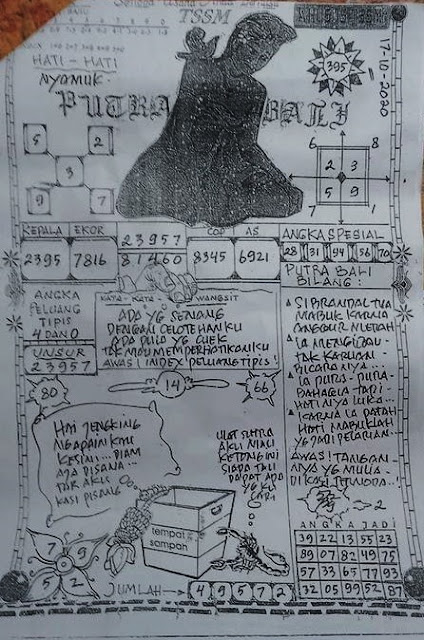 TSSM
HATI - HATI
NYAMUK
395
17-10-2020
PUTRA BALI
5 2
3
9 7
6 8
2 3
5 9
7 1
KEPALA EKOR
2395 7816
23957
81460
COP AS
8345 6921
ANGKA SPESIAL
28 31 94 56 70
ANGKA
PELUANG
TIPIS
4 DAN 0
UNSUR
23957
KATA - KATA WANGSIT
ADA YG SENANG
DENGAN CELOTEHANKU
ADA PULA YG CUEK
TAK MAU MEMPERHATIKANKU
AWAS! INDEX PELUANG TIPIS!
PUTRA BALI
BILANG:
SI BRANDAL TUA
MABUK KARNA
ANGGUR MERAH
IA MENGIGAU
TAK KARUAN
BICARANYA...
IA PURA-PURA
BAHAGIA TAPI
HATINYA LUKA...
KARNA IA PATAH
HATI MABUKLAH
YG JADI PELARIAN.
AWAS! TANGAN
NYA YG MULIA
DIKASI TERNODA..!
2
80
14
66
HAI JENGKING
NGAPAIN KMU
KESINI... DIAM
AJA DISANA...
TAK AKU
KASI PISANG
ULAT SUTRA
AKU NIALI
KETONG INI
SIAPA TALI
DAPAT ADA
YG KU
CARI
tempat
sampah
7 9
5 2
JUMLAH → 4 9 5 7 2
ANGKA JADI
39 22 13 55 23
89 07 82 49 75
57 33 65 77 93
32 05 99 52 87